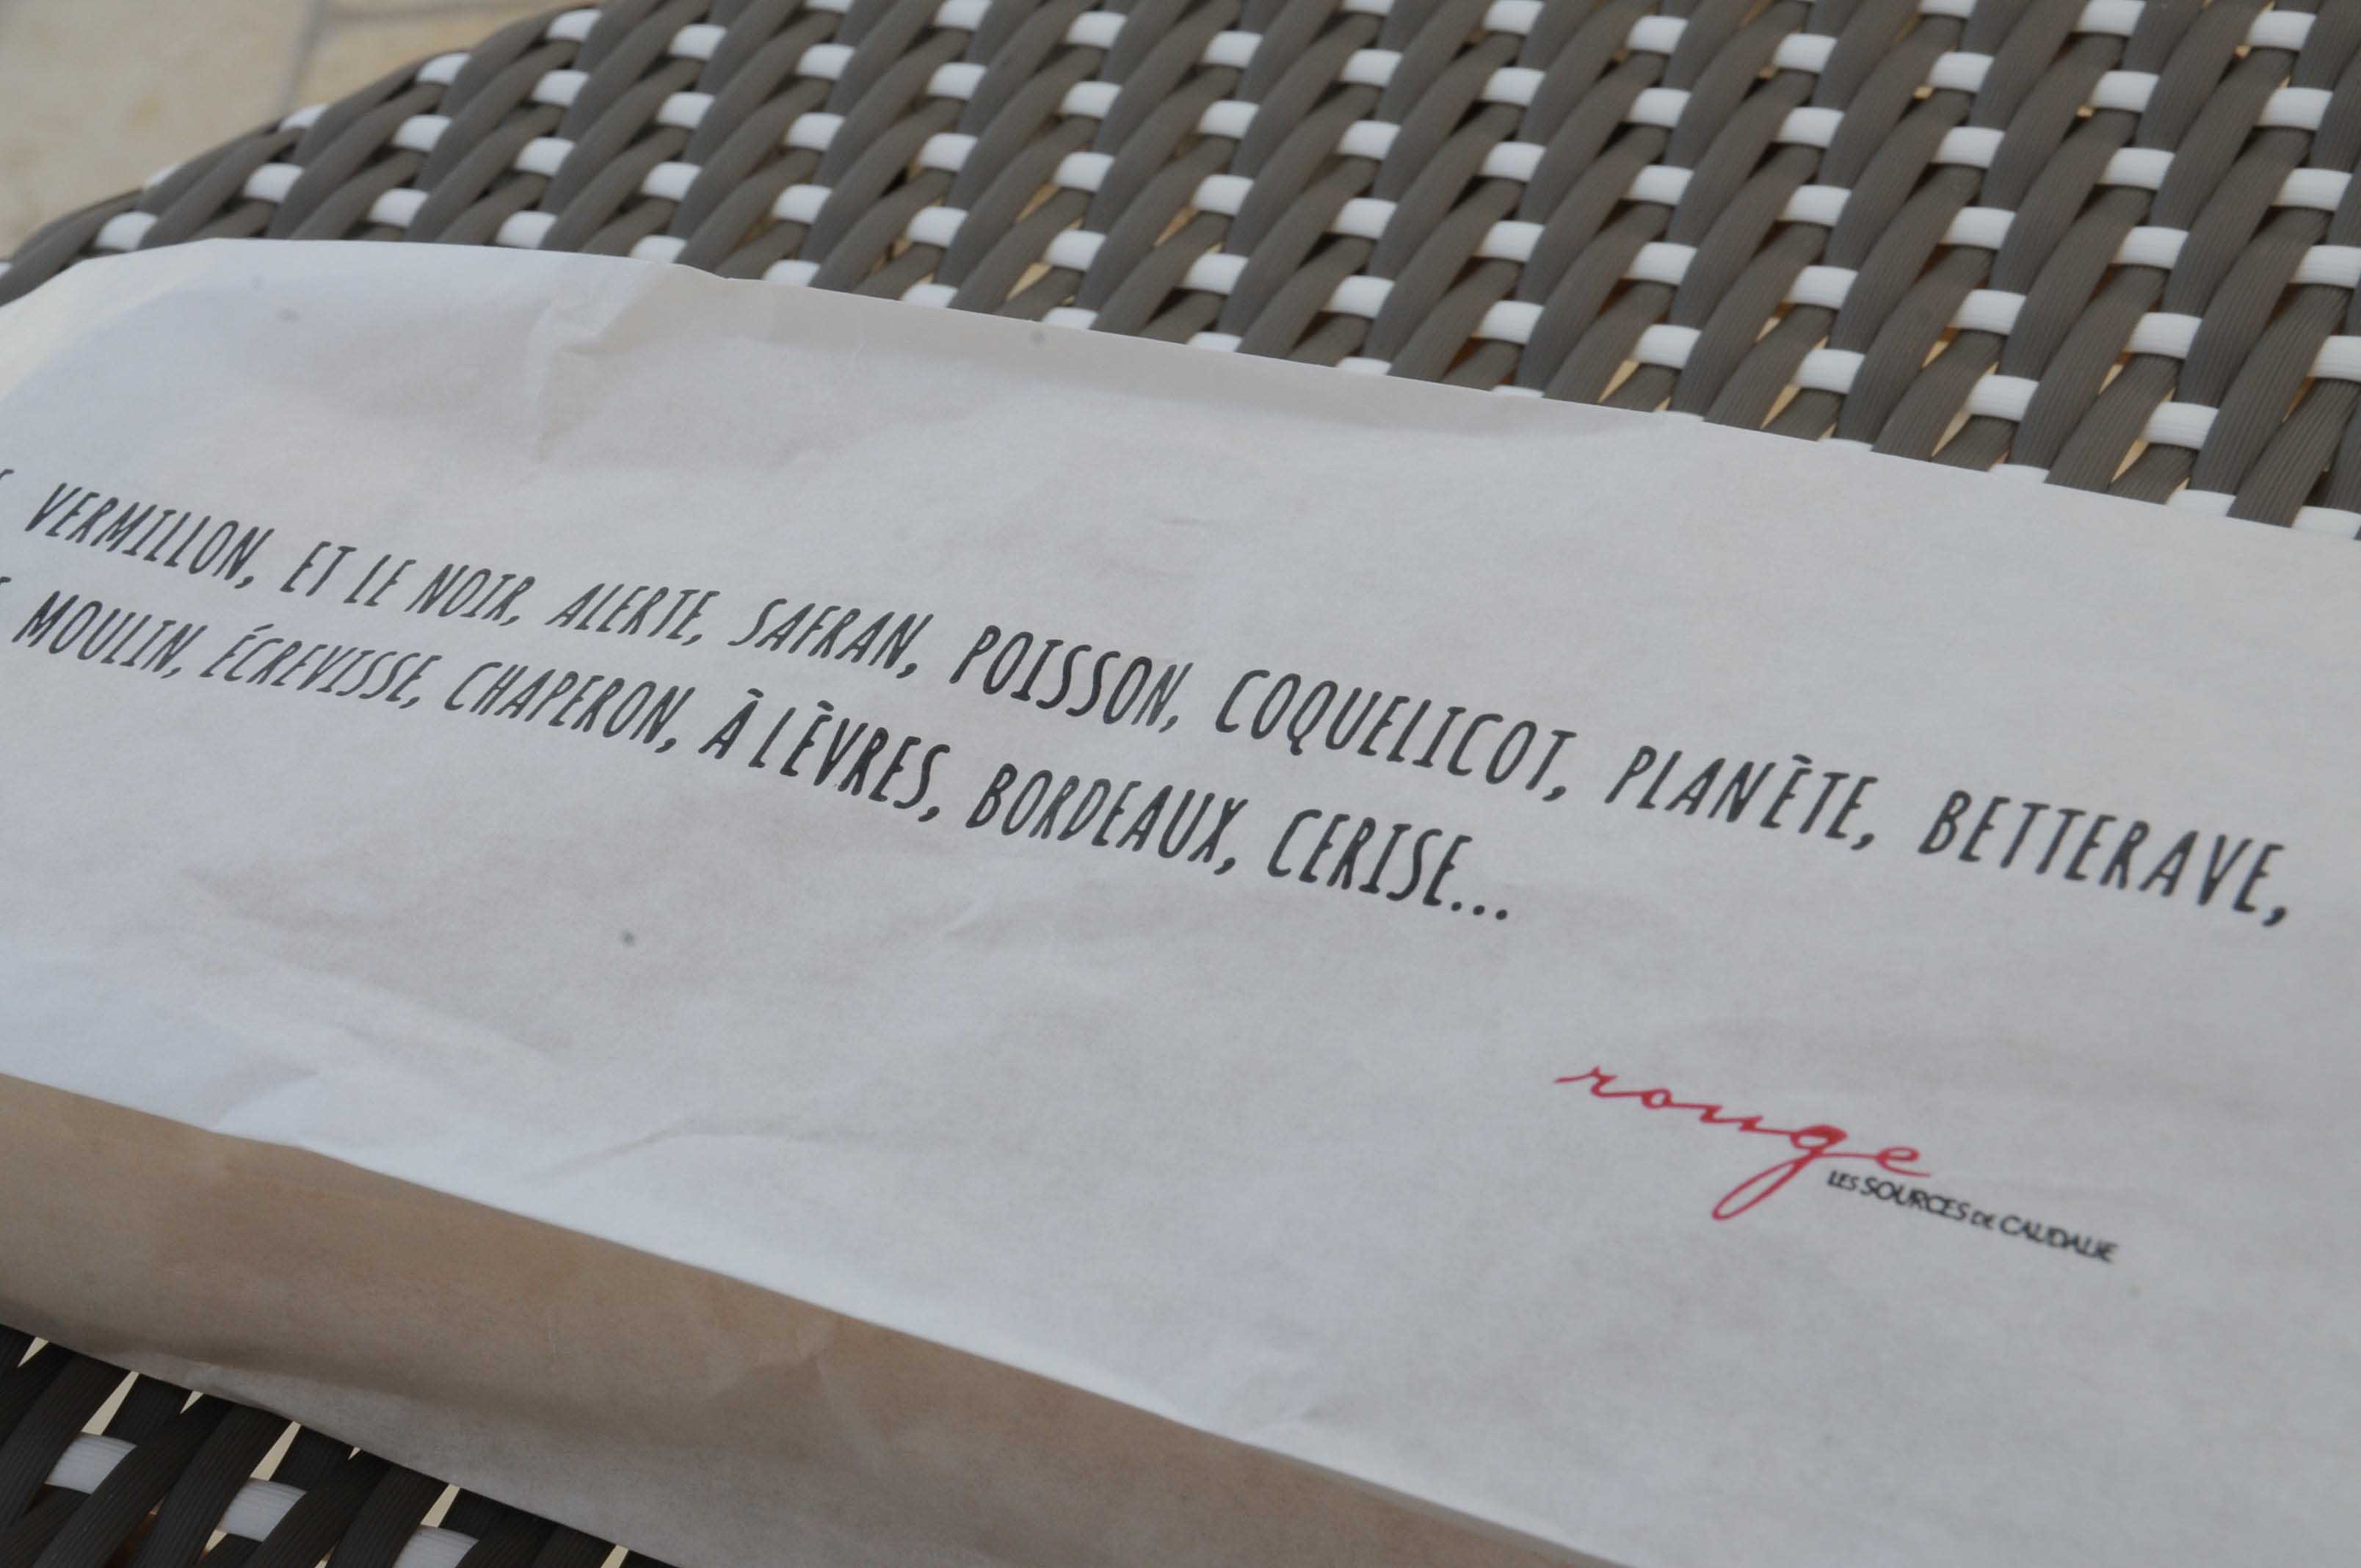 VERMILLON, ET LE NOIR, ALERTE, SAFRAN, POISSON, COQUELICOT, PLANÈTE, BETTERAVE,
MOULIN, ÉCREVISSE, CHAPERON, À LÈVRES, BORDEAUX, CERISE...
rouge
LES SOURCES DE CAUDALIE